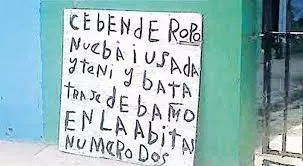 CEBENDE ROPO
NUEBA I USADA
Y TENI Y BATA
TRAJE DE BAÑO
EN LA ABITAI
NUMARO DOS